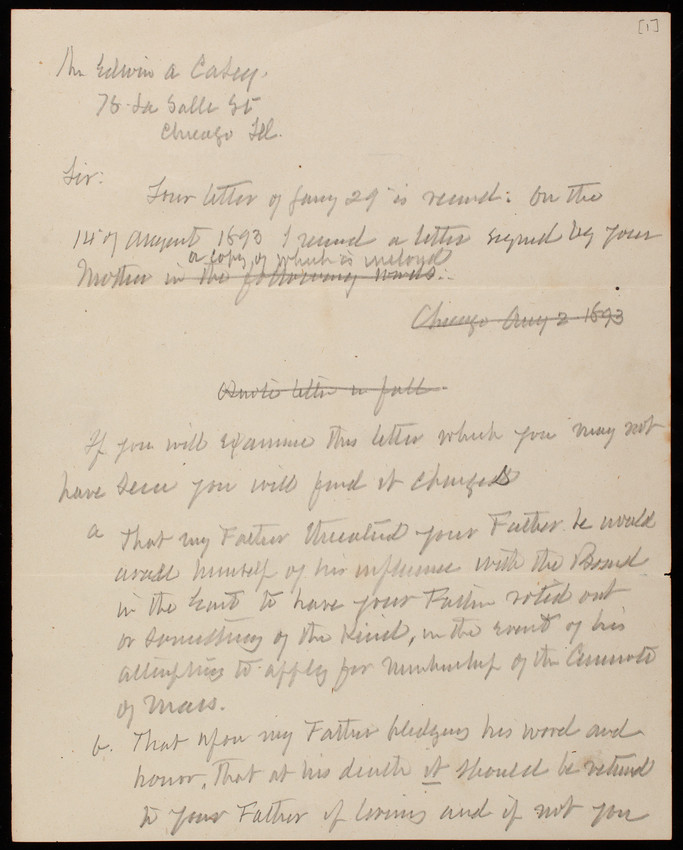 [1]
Mr Edwin A Casey.
78 La Salle St
Chicago Ill.
Sir:
Your letter of Jany 29 is received: On the
14 of August 1893 I received a letter signed by your
a copy of which is inclosed
Mother in the following words:
Chicago Aug 2 1893
Quote letter in full.
If you will examine this letter which you may not
have seen you will find it charges
a That my Father threatened your Father he would
avail himself of his influence with the Board
in the East to have your Father voted out
or something of the kind, in the event of his
attempting to apply for membership of the
of Mass.
b. That upon my Father pledging his word and
honor, that at his death it should be returned
to your Father if living and if not you